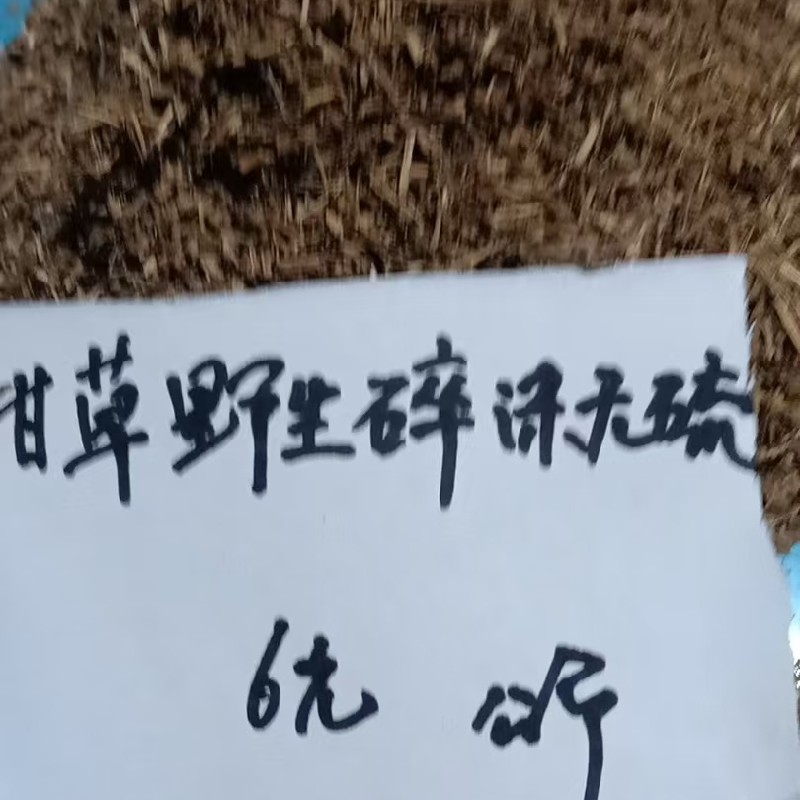 甘草野生碎净无硫
6元 公斤